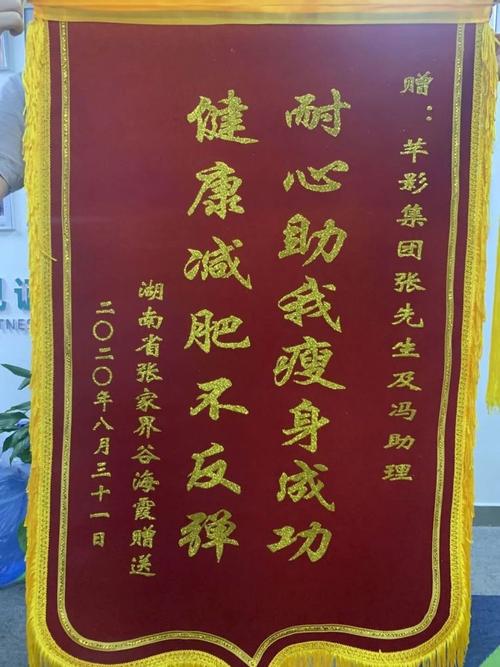 赠：芊影集团张先生及冯助理
耐心助我瘦身成功
健康减肥不反弹
湖南省张家界谷海霞赠送
二〇二〇年八月三十一日